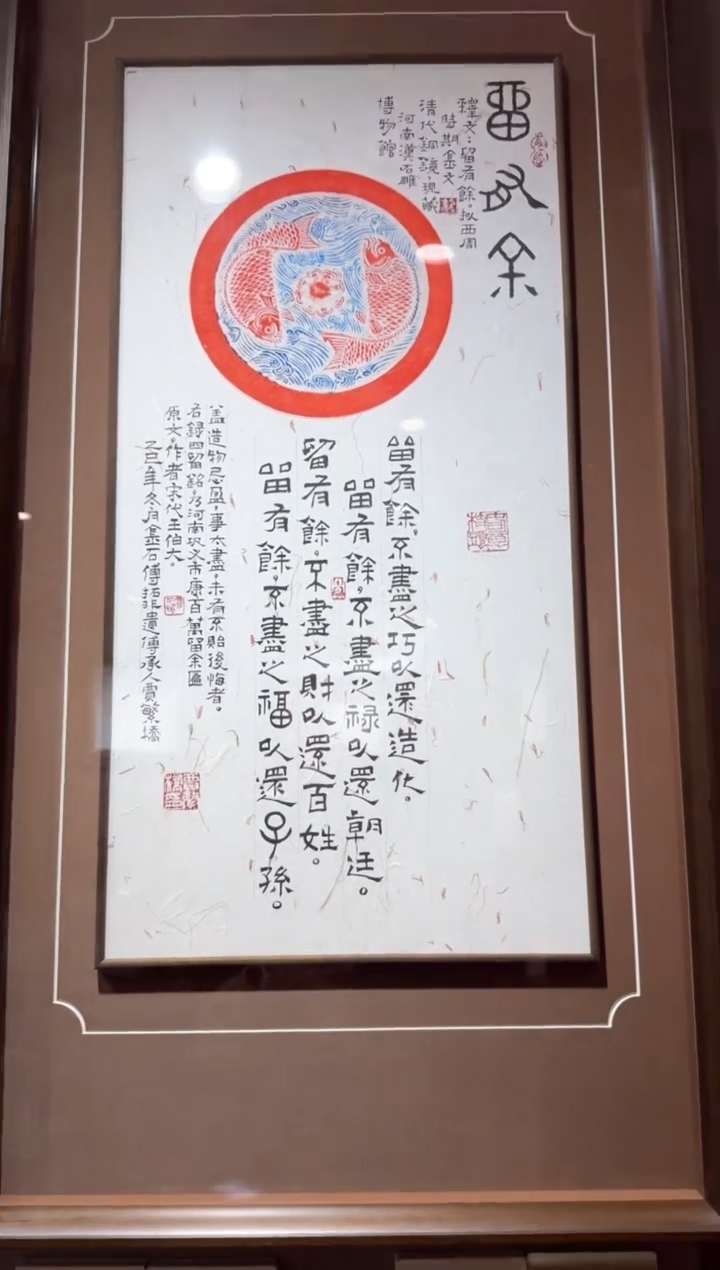 留有余
釋文：留有餘。拟西周
時期金文
清代銅鏡，現藏
河南漢石雕
博物館
留有餘，不盡之巧以還造化。
留有餘，不盡之禄以還朝廷。
留有餘，不盡之財以還百姓。
留有餘，不盡之福以還子孫。
蓋造物忌盈，事太盡，未有不貽後悔者。
右録四留銘，乃河南巩义市康百萬留余匾
原文。作者宋代王伯大。
乙巳年冬月金石傳拓非遺傳承人賈繁橋